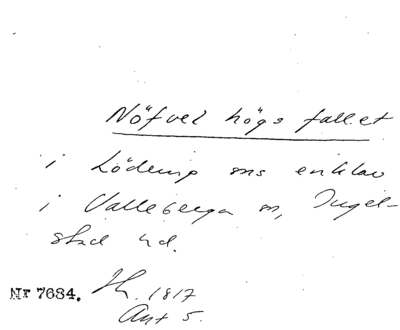 Nöfvel högs fallet
i Löderup sns enklav
i Valleberga sn, Ingel-
stad hd.
Nr 7684. 1817
Ant 5.